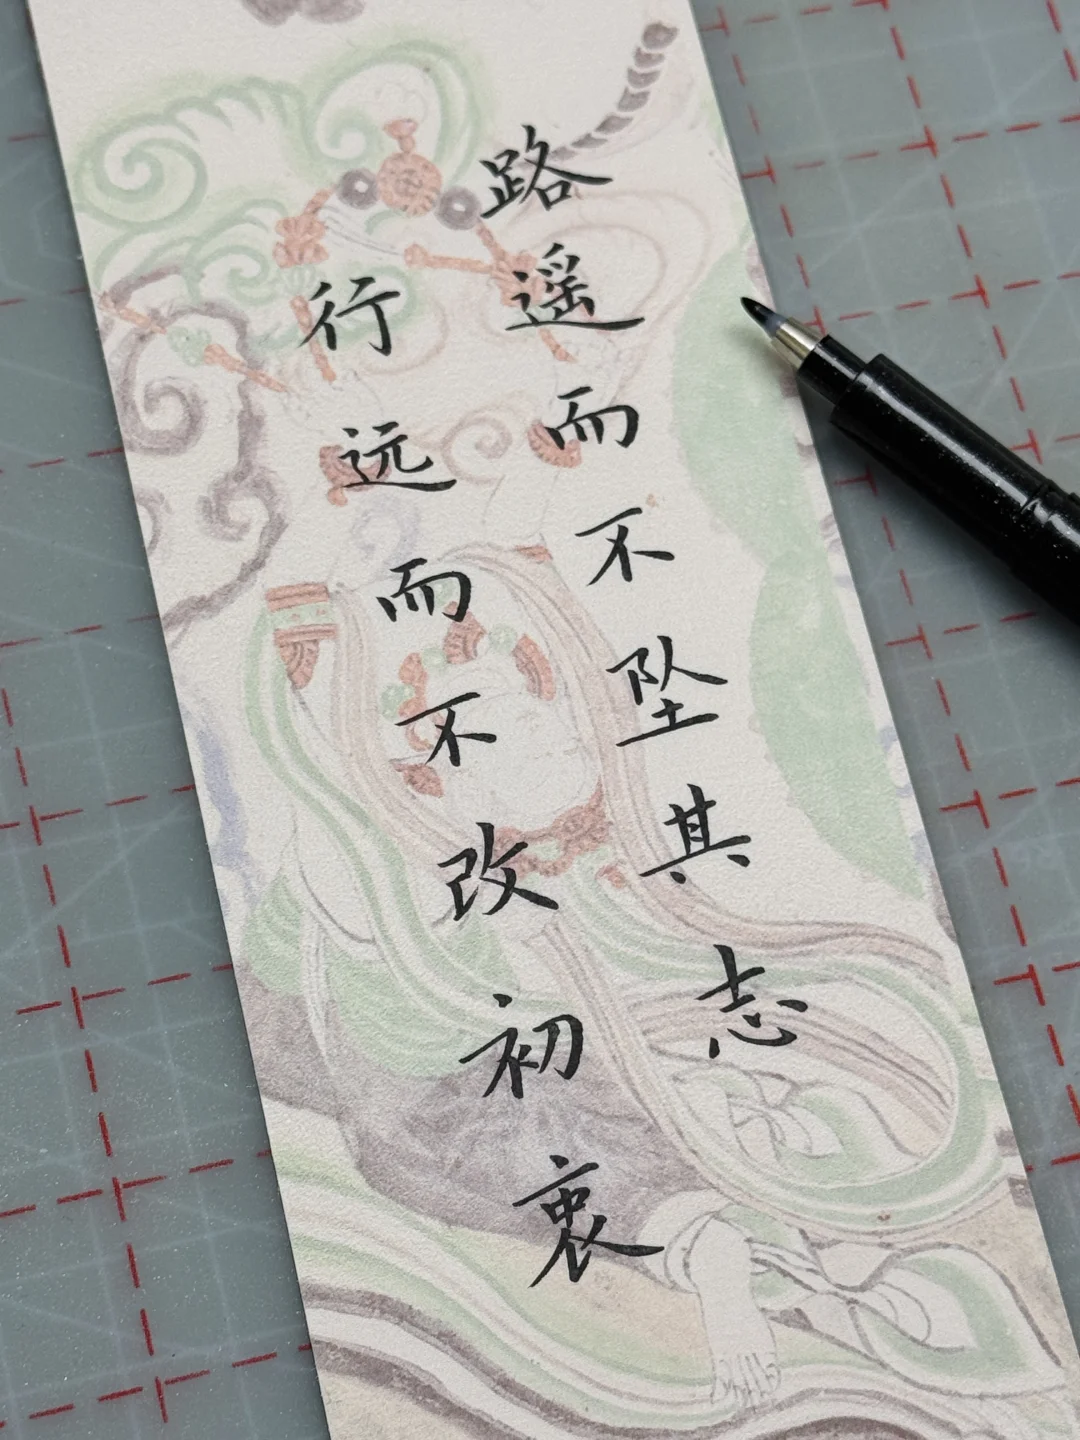 路遥而不坠其志
行远而不改初衷